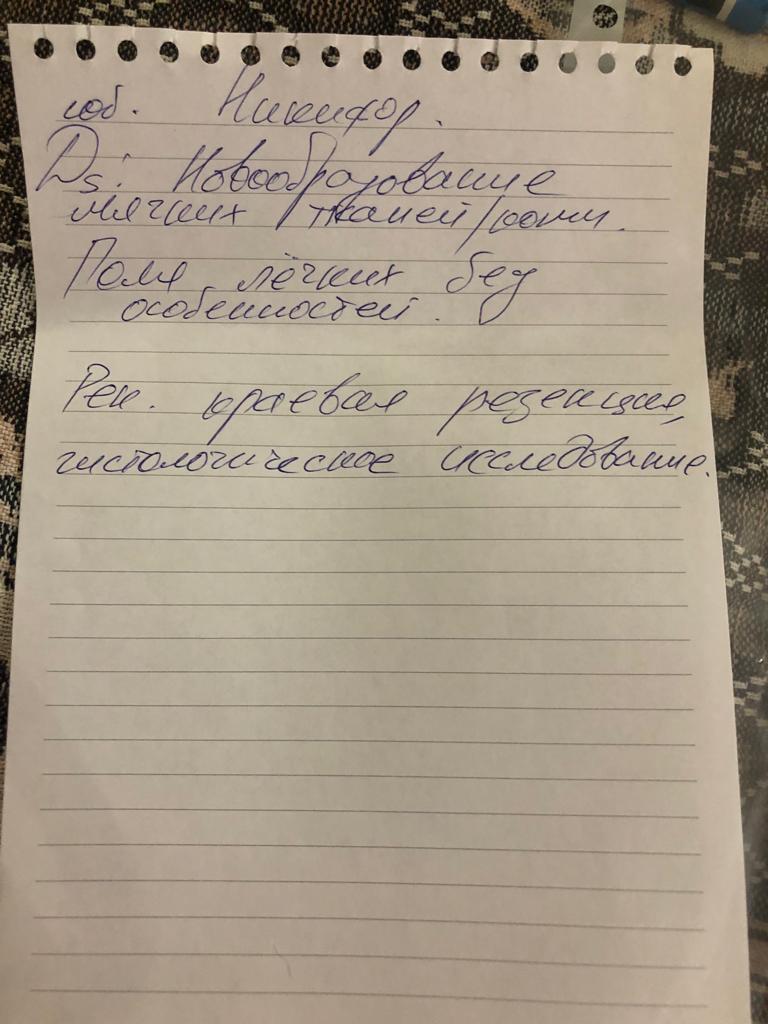 соб. Никифор.
Ds: Новообразование
мягких тканей/кожи.
Поля лёгких без
особенностей.
Рек. краевая резекция,
гистологическое исследование.